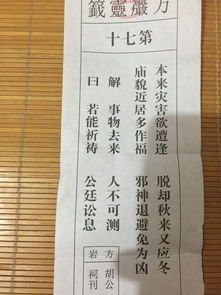 方巖靈籤
第七十
本来灾害欲遭逢　脱却秋来又应冬
庙貌近居多作福　邪神退避免为凶
解　事物去来　人不可测
曰　若能祈祷　公廷讼息
方岩　胡公祠刊